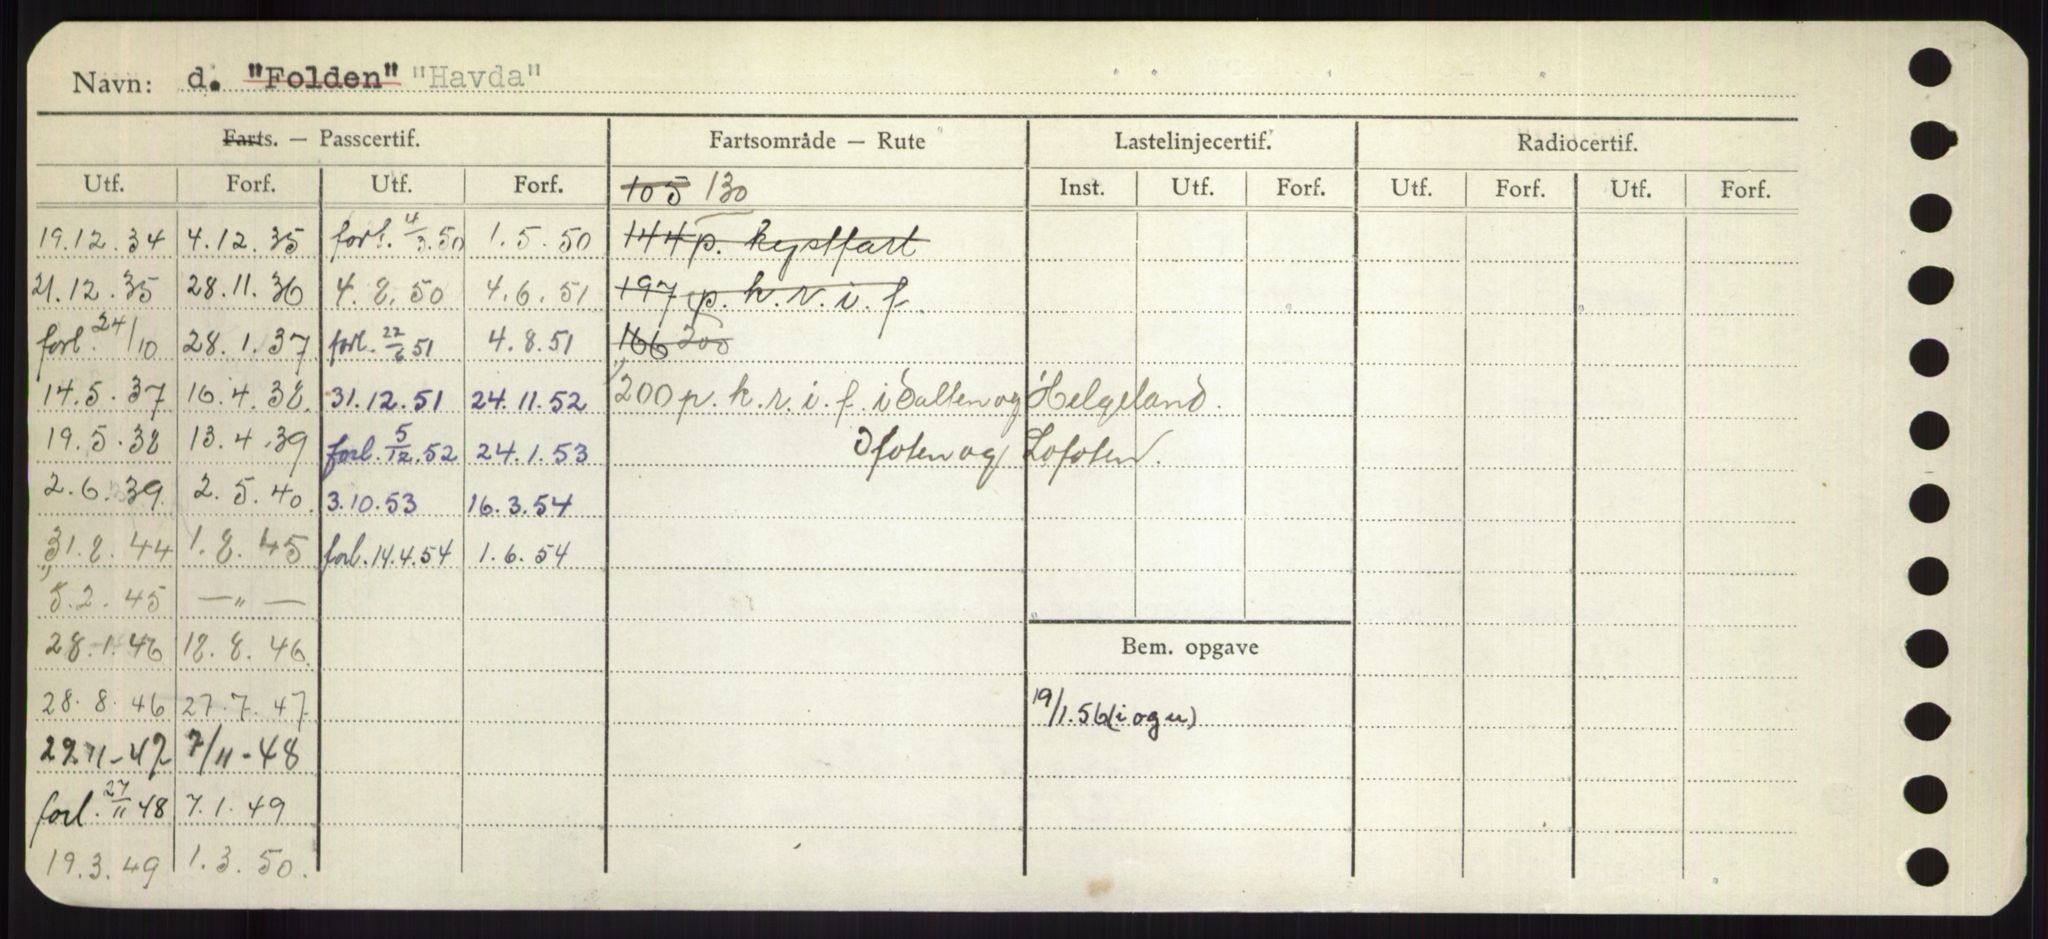 Navn: d. "Folden" "Havda"
Farts. — Passcertif. Fartsområde — Rute Lastelinjecertif. Radiocertif.
Utf. Forf. Utf. Forf. 105 130 Inst. Utf. Forf. Utf. Forf. Utf. Forf.
19.12.34 4.12.35 forl. 4/3.50 1.5.50 144 p. kystfart
21.12.35 28.11.36 4.8.50 4.6.51 197 p. k. r. i. f.
forl. 24/10 28.1.37 forl. 22/6 51 4.8.51 166 200
14.5.37 16.4.38 31.12.51 24.11.52 200 p. k. r. i. f. i Salten og Helgeland.
19.5.38 13.4.39 forl. 5/12.52 24.1.53 Ofoten og Lofoten.
2.6.39 2.5.40 3.10.53 16.3.54
31.8.44 1.8.45 forl. 14.4.54 1.6.54
5.2.45 — " —
28.1.46 12.8.46 Bem. opgave
28.8.46 27.7.47 19/1.56 (i og u)
22 11-47 7/11-48
forl. 27/11 48 7.1.49
19.3.49 1.3.50.